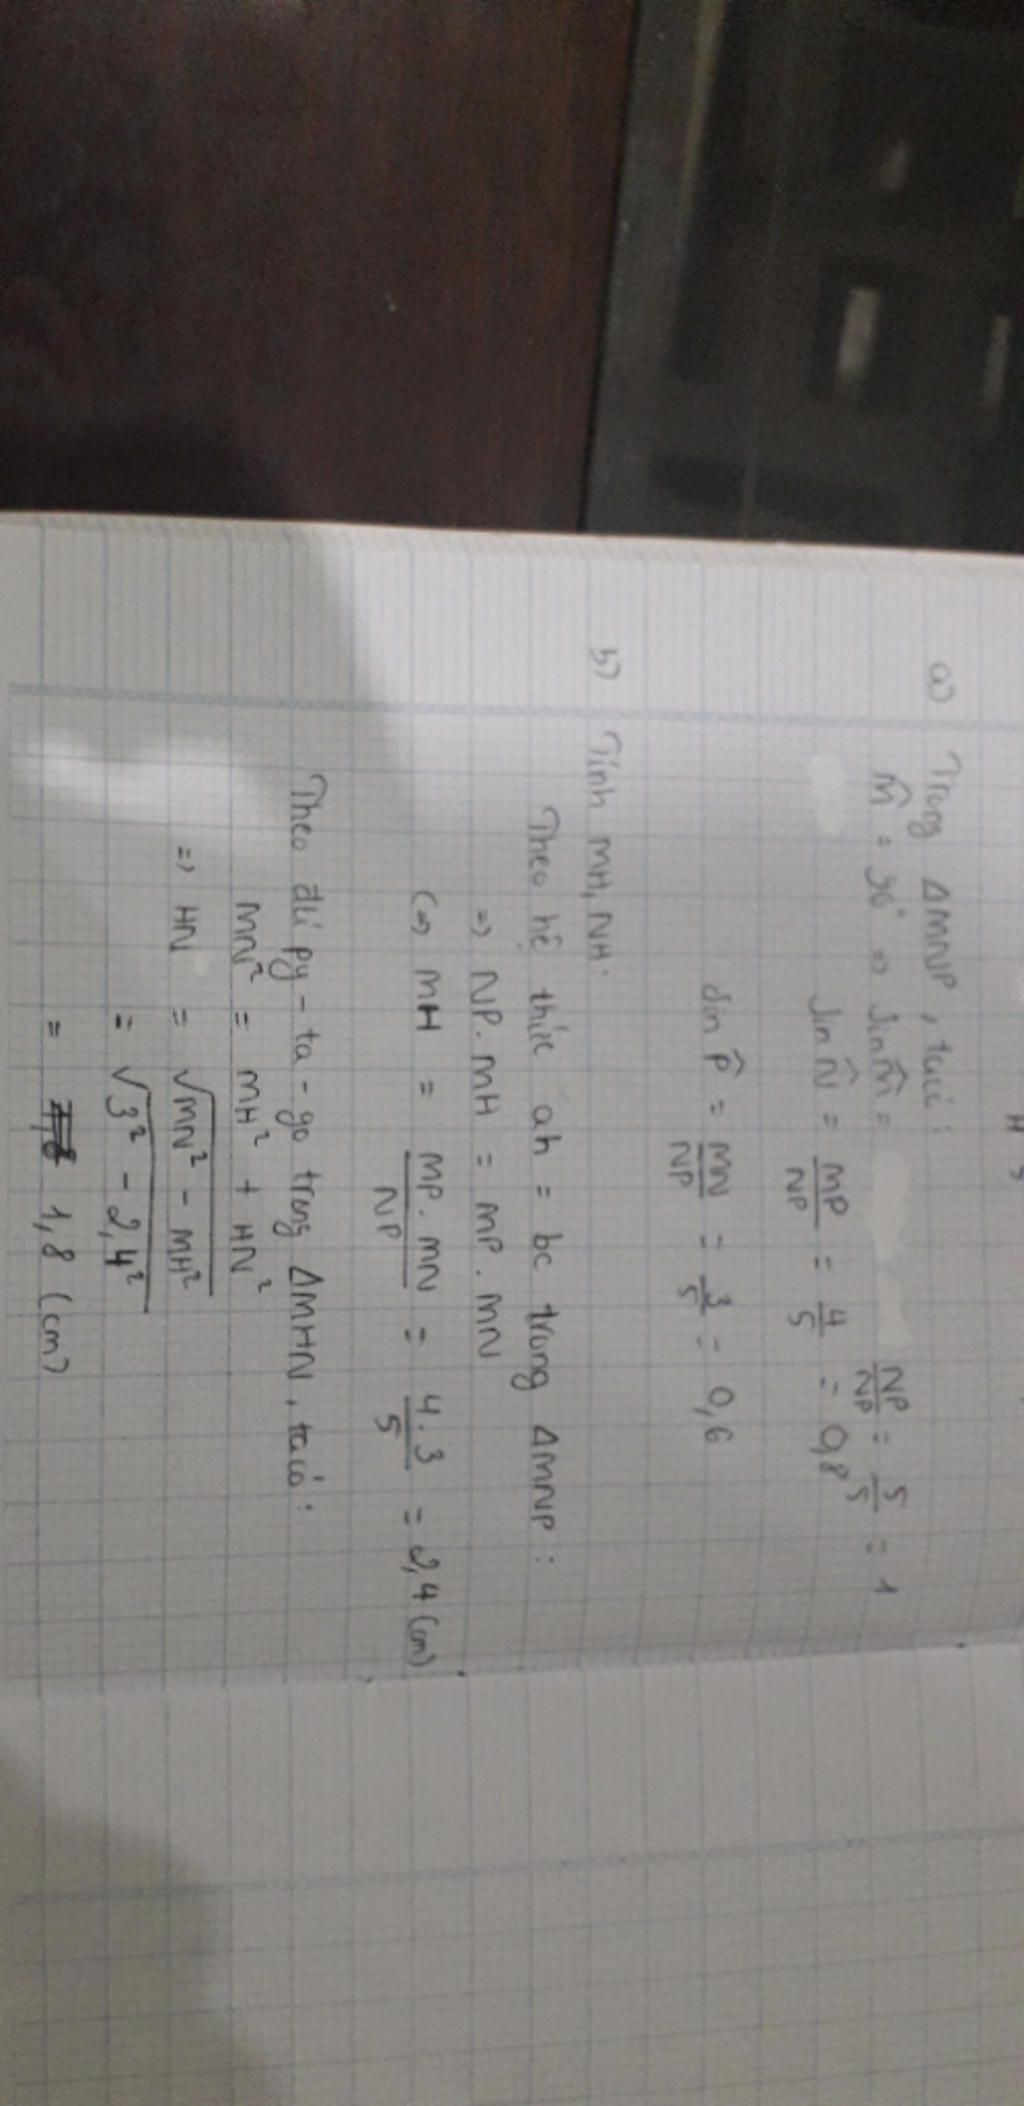 H 5
a) Trong ΔMNP, ta có:
M̂ = 90° => sin M̂ = NP/NP = 5/5 = 1
sin N̂ = MP/NP = 4/5 = 0,8
sin P̂ = MN/NP = 3/5 = 0,6
b) Tính MH, NH.
Theo hệ thức ah = bc trong ΔMNP:
=> NP. MH = MP. MN
(=> MH = MP. MN/NP = 4.3/5 = 2,4 (cm)
Theo đlí py-ta-go trong ΔMHN, ta có:
MN² = MH² + HN²
=> HN = √MN² - MH²
= √3² - 2,4²
= 1,8 (cm)